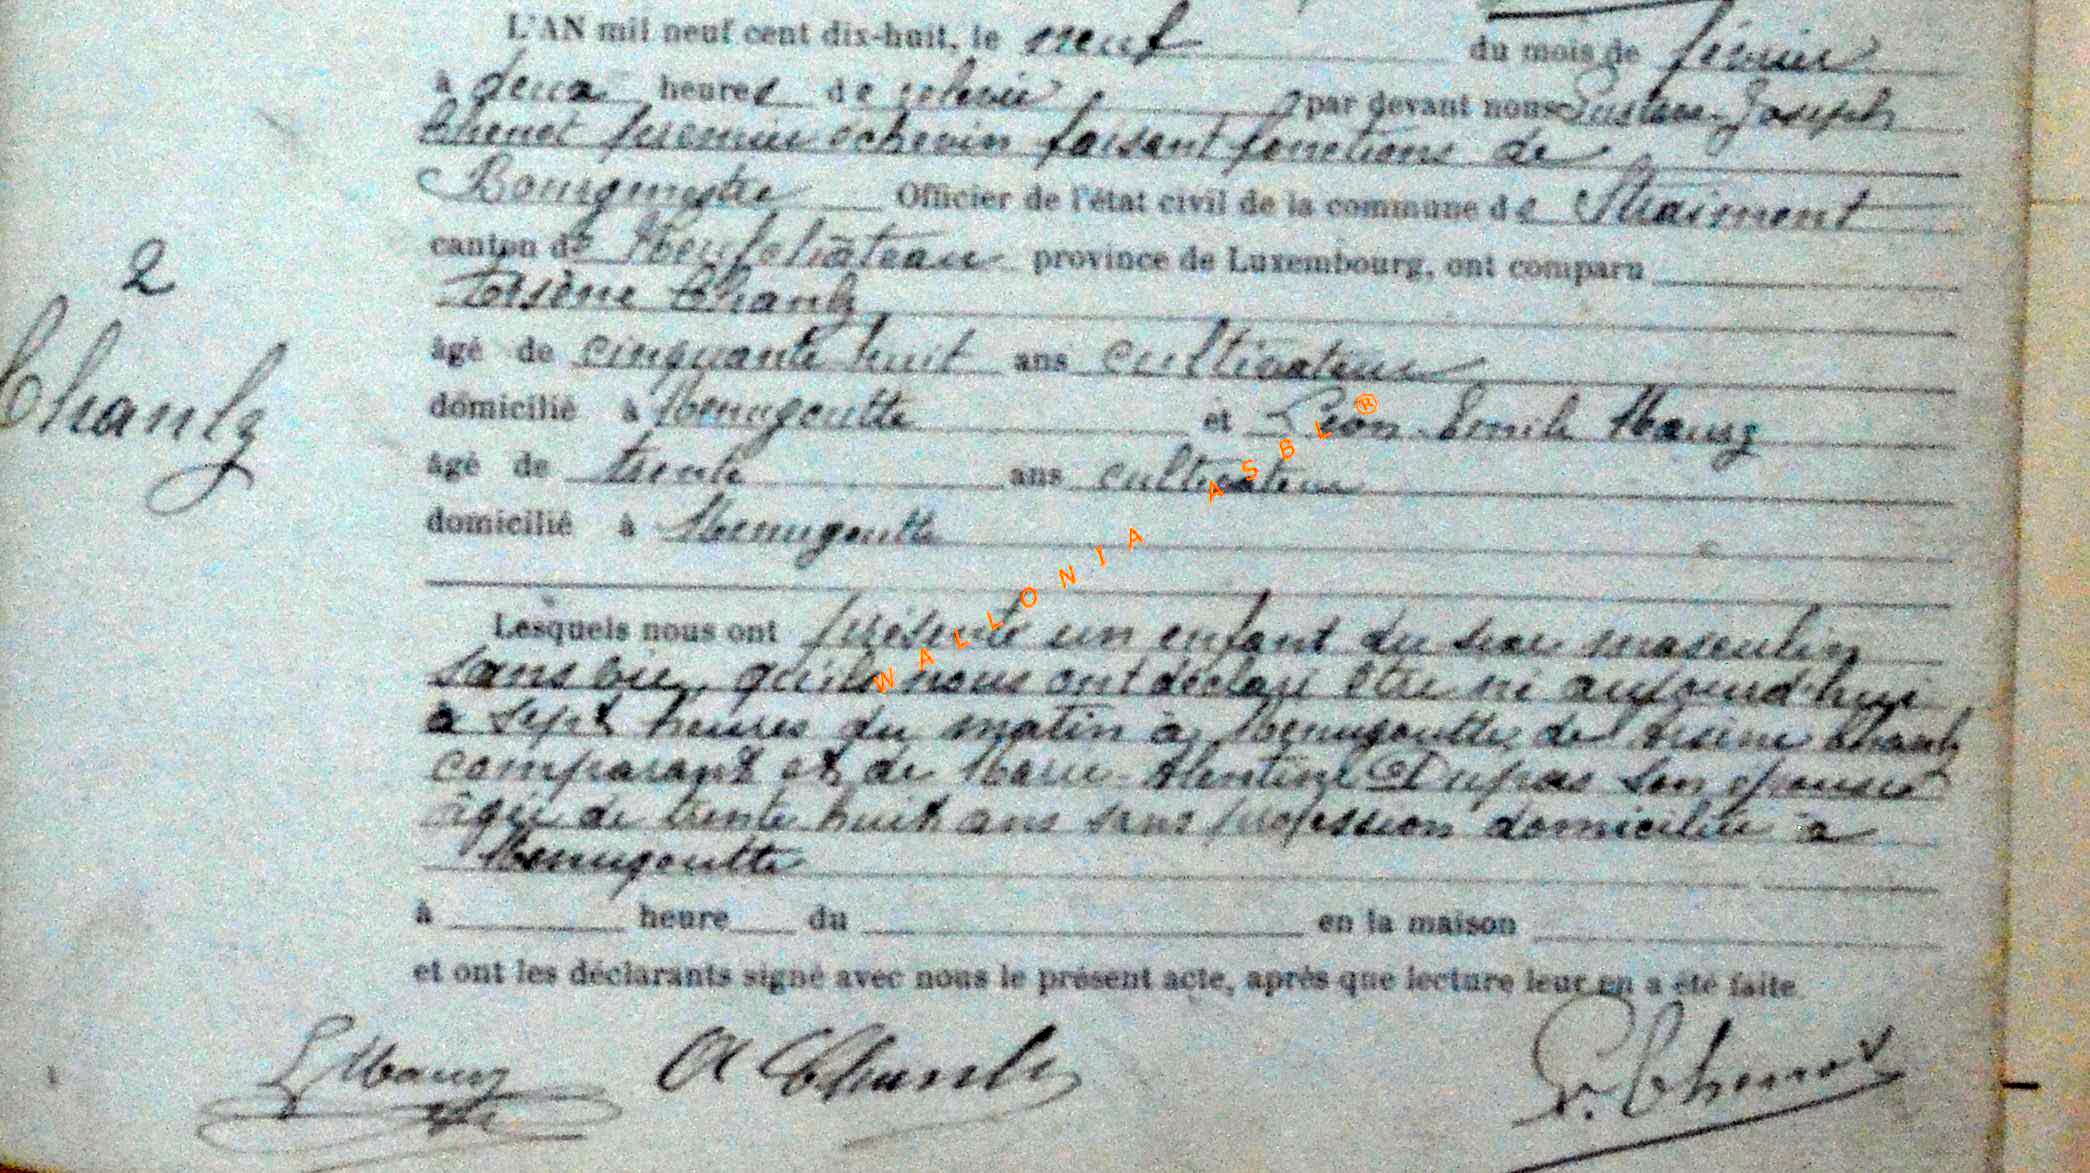 L'AN mil neuf cent dix-huit, le neuf du mois de février
à deux heures de relevée par devant nous Gustave Joseph
Thenot premier échevin faisant fonctions de
Bourgmestre Officier de l'état civil de la commune de Straimont
canton de Neufchâteau province de Luxembourg, ont comparu
2
Arsène Chantz
Chantz
âgé de cinquante huit ans cultivateur
domicilié à Menugoutte et Léon Emile Mauxz
âgé de trente ans cultivateur
domicilié à Menugoutte
Lesquels nous ont présenté un enfant du sexe masculin
sans vie, qu'ils nous ont déclaré être né aujourd'hui
à sept heures du matin à Menugoutte, de Arsène Chantz
comparant et de Marie Dupas son épouse
âgée de trente huit ans sans profession domiciliée à
Menugoutte
à heure du en la maison
et ont les déclarants signé avec nous le présent acte, après que lecture leur en a été faite
A Chantz G. Thenot
WALLONIA ASBL ®